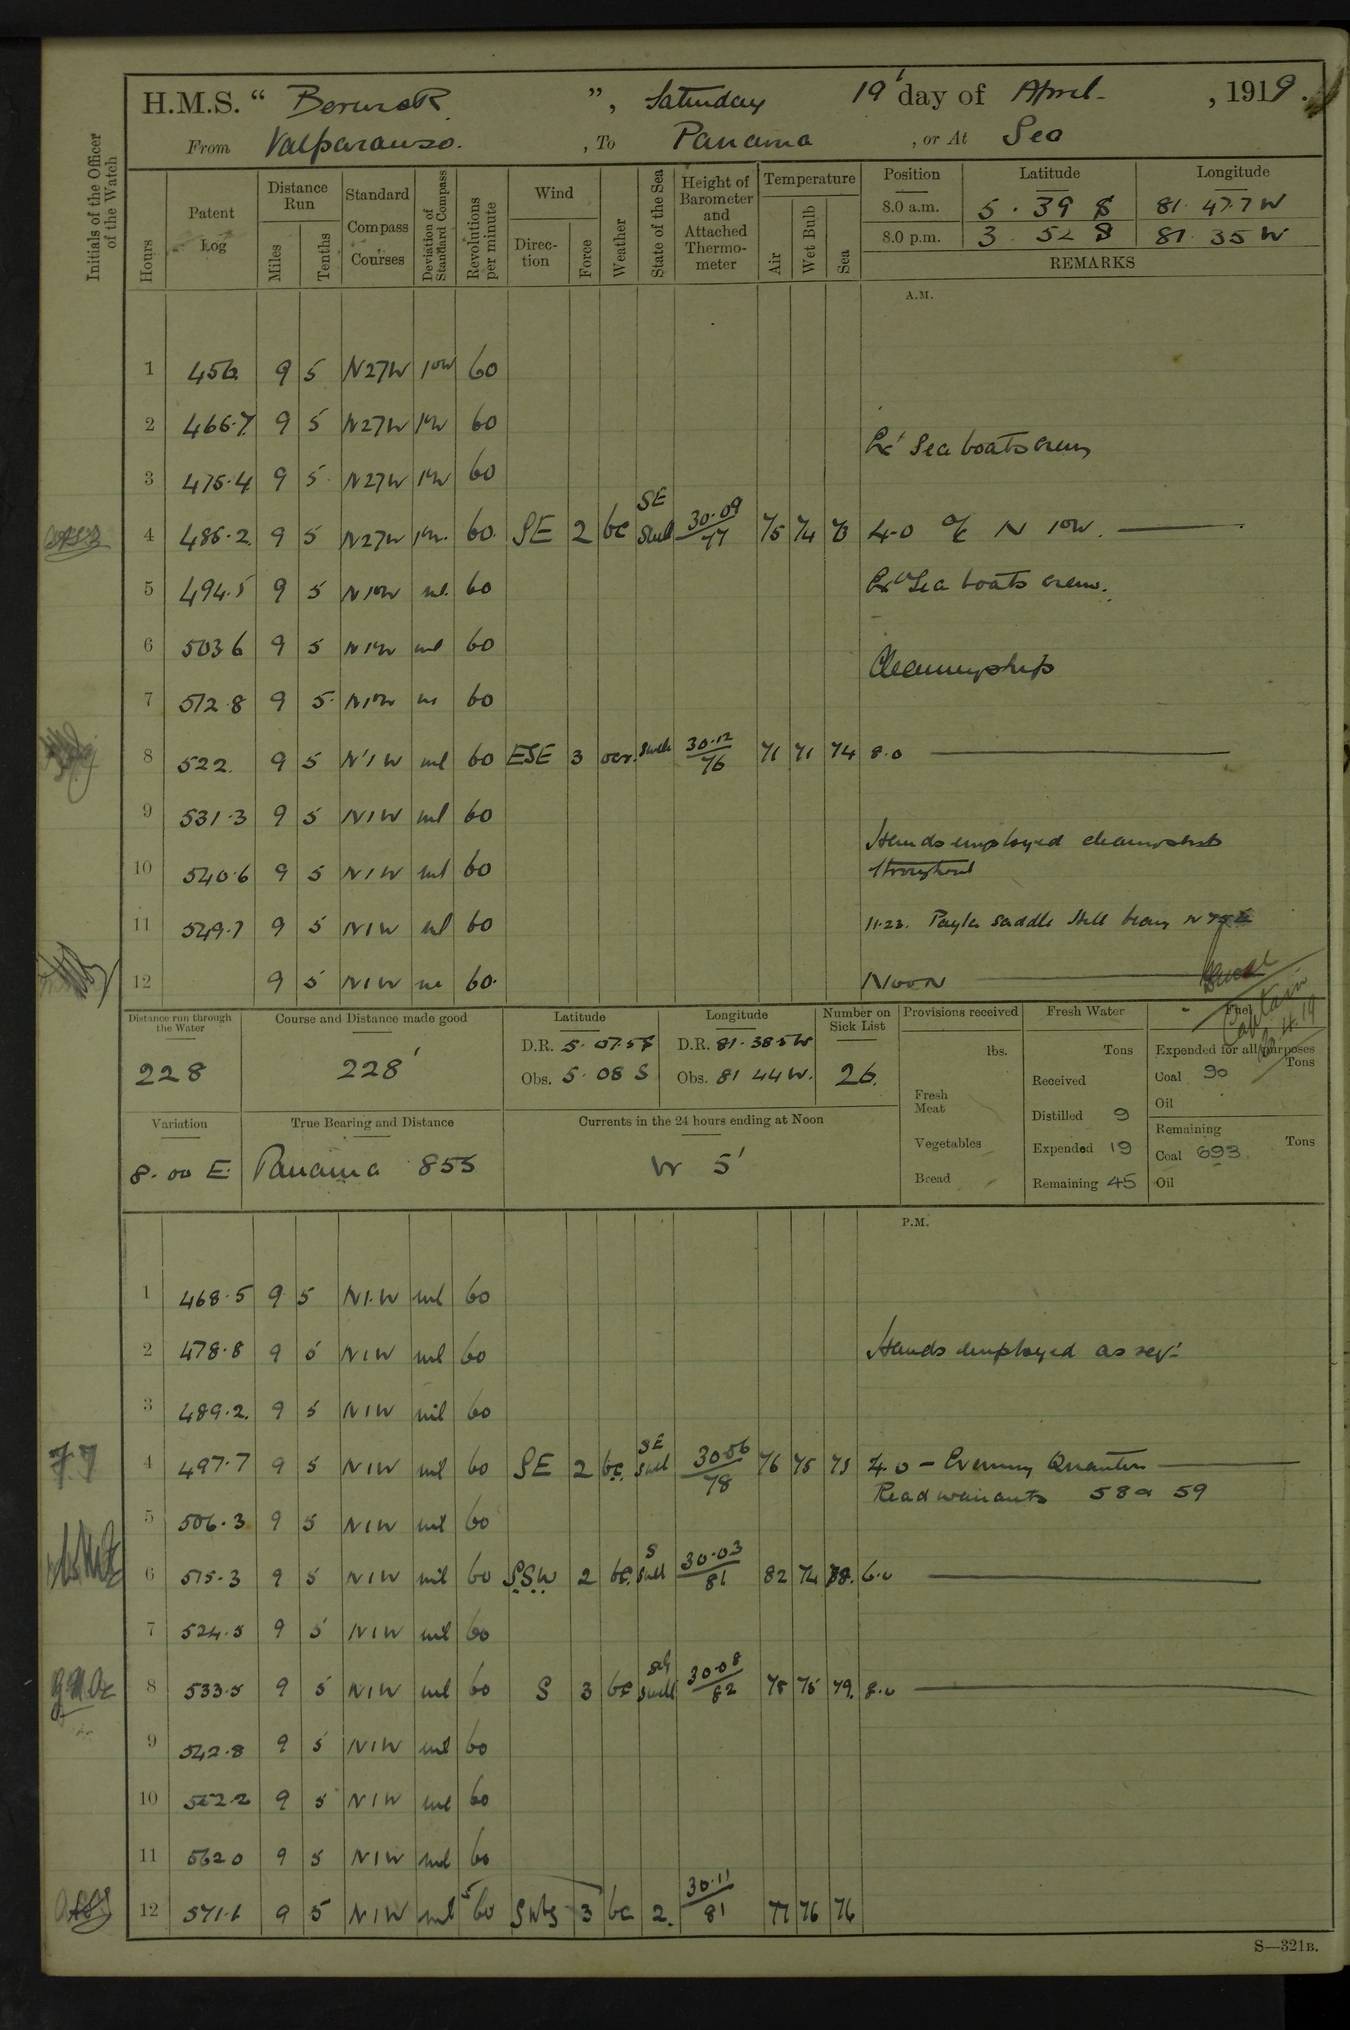 H.M.S. " Berwick ", Saturday 19 day of April , 1919.
From Valparaiso. , To Panama , or At Sea
Initials of the Officer of the Watch
Hours Patent Log Distance Run Miles Tenths Standard Compass Courses Deviation of Standard Compass Revolutions per minute Wind Direction Force Weather State of the Sea Height of Barometer and Attached Thermometer Temperature Air Wet Bulb Sea Position Latitude Longitude
8.0 a.m. 5. 39 S 81. 47.7 W
8.0 p.m. 3 52 S 81 35 W
REMARKS
A.M.
1 456 9 5 N27W 1°W 60
2 466.7 9 5 N27W 1°W 60
Sea boats crew
3 475.4 9 5 N27W 1°W 60
4 485.2 9 5 N27W 1°W 60 SE 2 bc SE Swell 30.09 77 75 74 73 4.0 a/c N 1°W.
5 494.5 9 5 N1°W nil 60 Sea boats crew.
6 503 6 9 5 N1°W nil 60
Cleaning ship
7 512.8 9 5 N1°W 60
8 522 9 5 N°1W nil 60 ESE 3 ocr. Swell 30.12 76 71 71 74 8.0
9 531.3 9 5 N1W nil 60
Hands employed cleaning ship
10 540.6 9 5 N1W nil 60 throughout
11 549.7 9 5 N1W nil 60 11.23. Payta Saddle Hill
12 9 5 N1W 60. Noon
Captain
Distance run through the Water Course and Distance made good Latitude Longitude Number on Sick List Provisions received Fresh Water Fuel
228 228' D.R. 5. 07.5S D.R. 81. 38.5W 26. lbs. Tons Expended for all purposes Tons
Obs. 5. 08 S Obs. 81 44 W. Received Coal 90
Fresh Meat Distilled 9 Oil
Variation True Bearing and Distance Currents in the 24 hours ending at Noon Remaining Tons
8.00 E. Panama 855 W 5' Vegetables Expended 19 Coal 693
Bread Remaining 45 Oil
P.M.
1 468.5 9 5 N1W nil 60
2 478.8 9 5 N1W nil 60 Hands employed as req.
3 489.2. 9 5 N1W nil 60
4 497.7 9 5 N1W nil 60 SE 2 bc. SE Swell 30.06 78 76 75 75 4.0 - Evening Quarters
Read warrants 58 & 59
5 506.3 9 5 N1W nil 60
6 515.3 9 5 N1W nil 60 SSW 2 bc. S Swell 30.03 81 82 74 78. 6.0
7 524.5 9 5 N1W nil 60
8 533.5 9 5 N1W nil 60 S 3 bc Swell 30.08 82 78 75 79. 8.0
9 542.8 9 5 N1W nil 60
10 552.2 9 5 N1W nil 60
11 562 0 9 5 N1W nil 60
12 571.6 9 5 N1W nil 60 SWbS 3 bc 2. 30.11 81 77 76 76
S—321B.